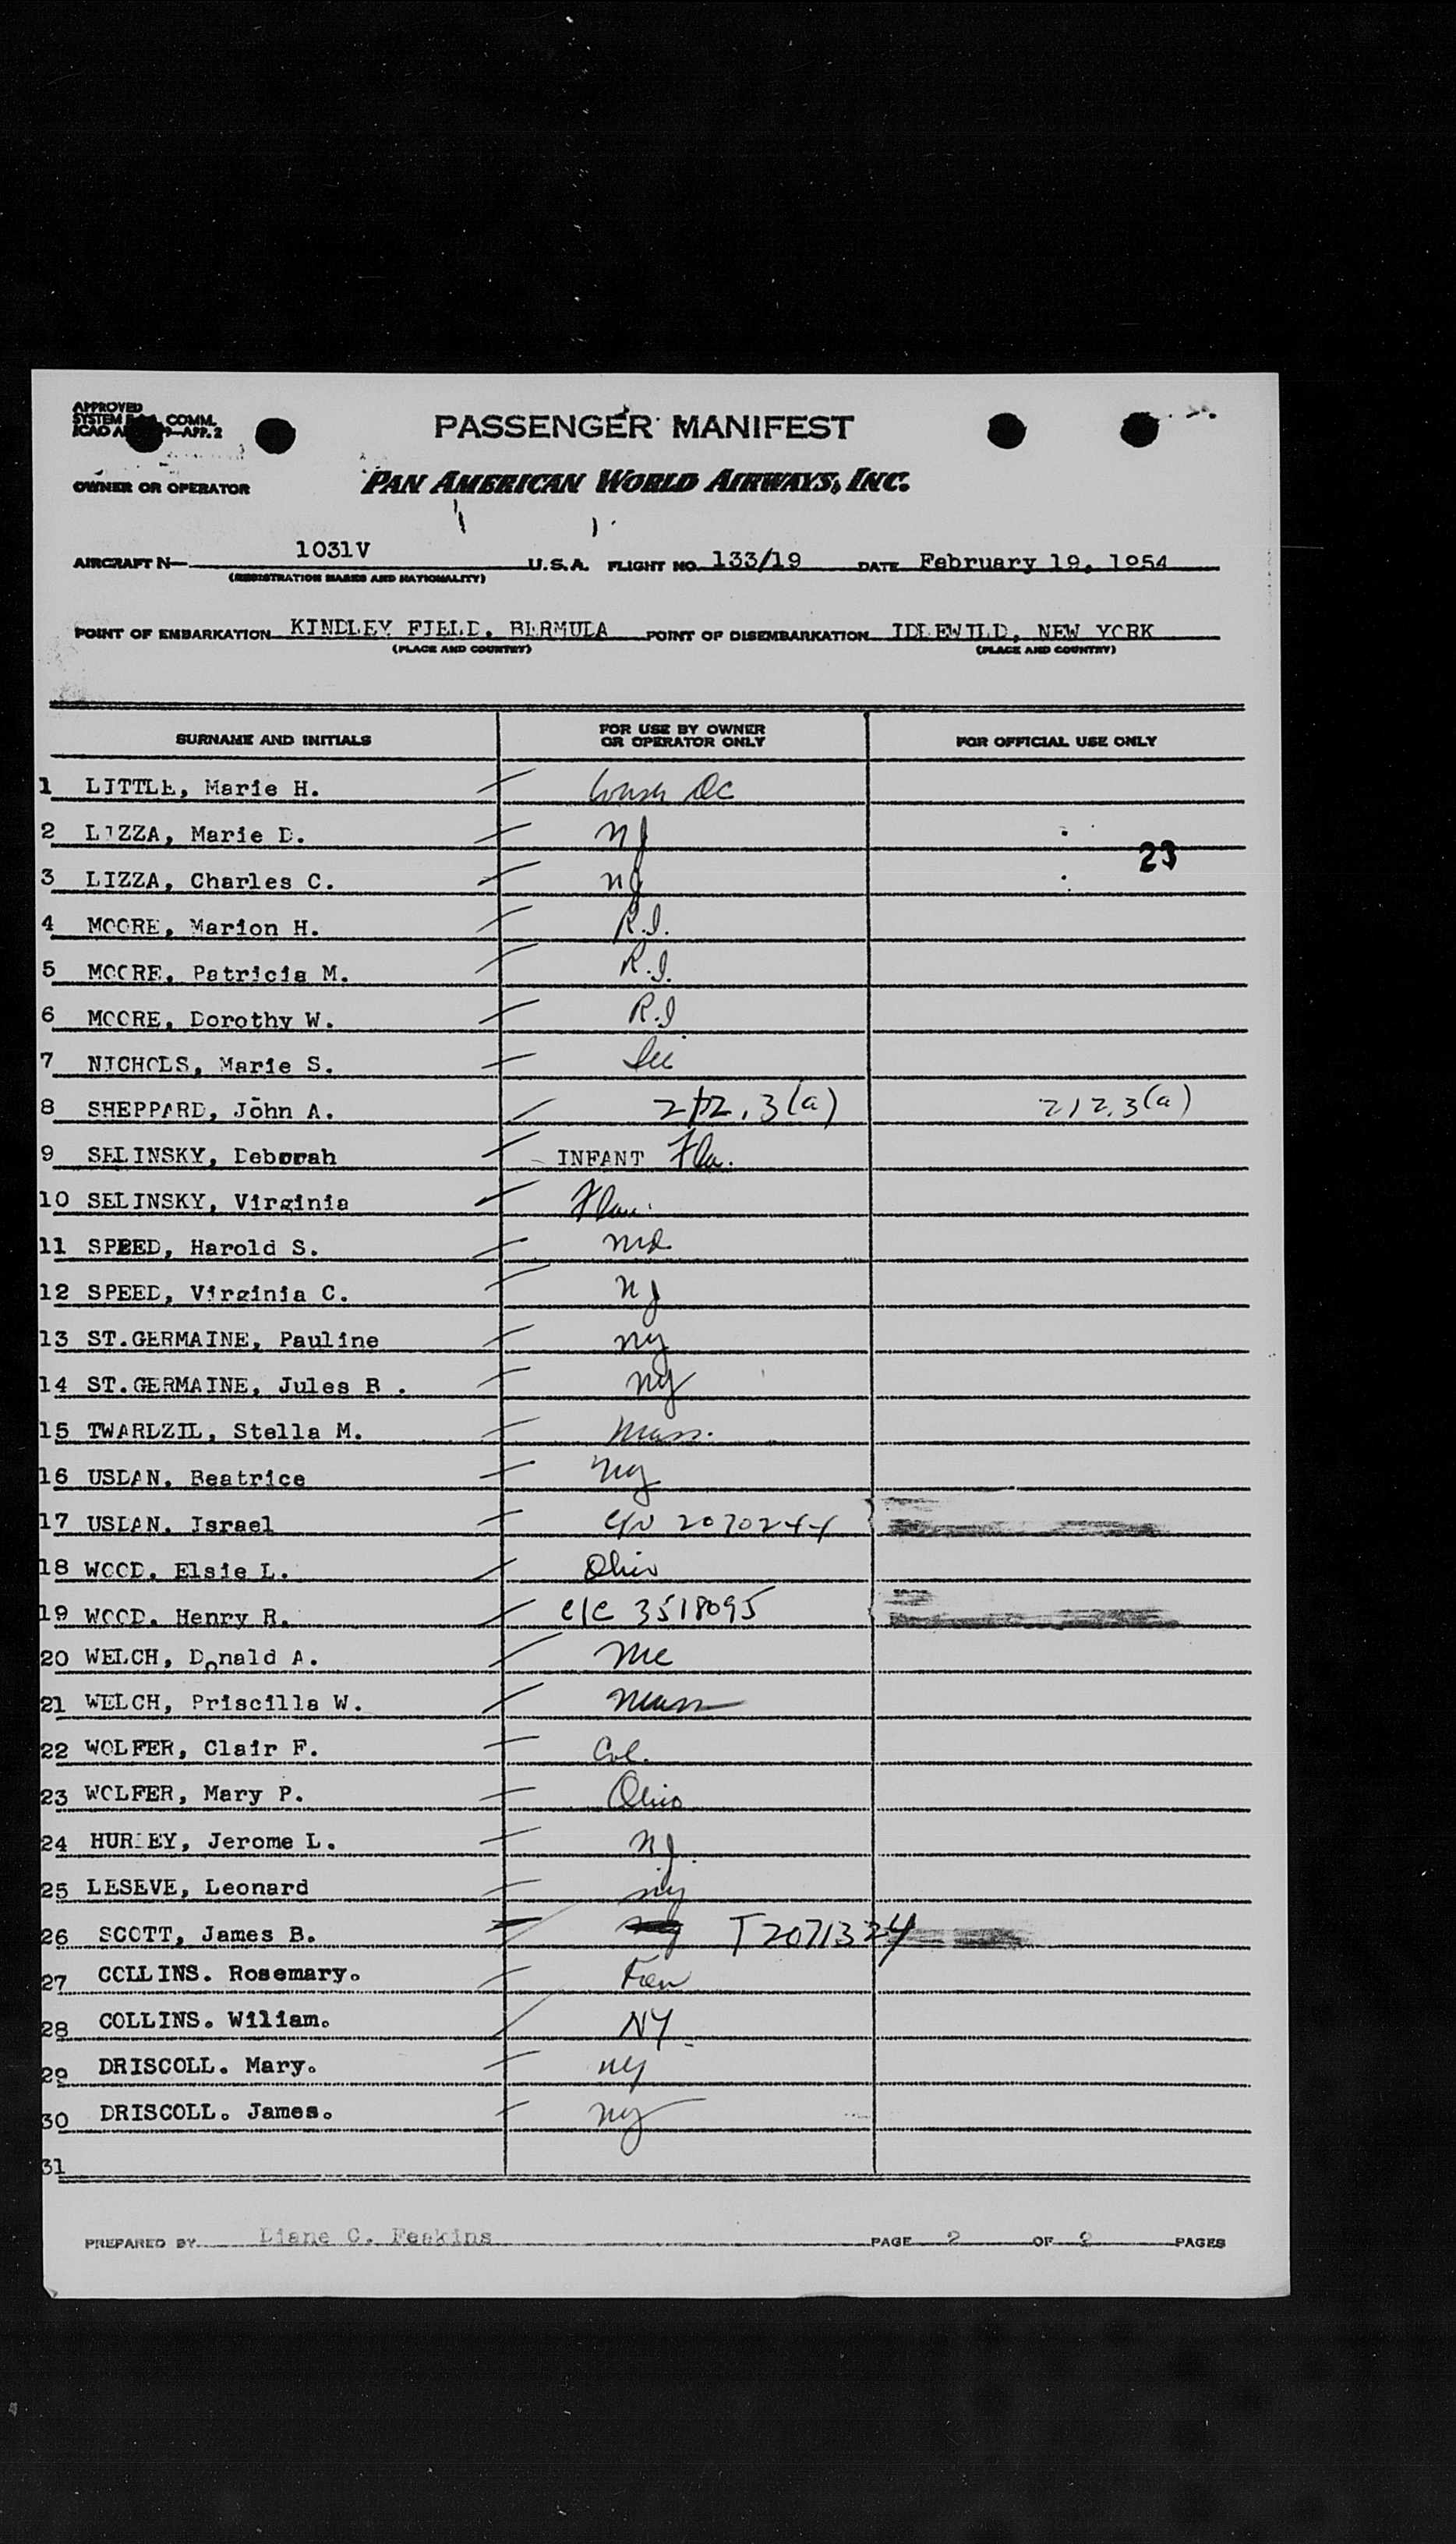 APPROVED
SYSTEM COMM.
ICAO APP. 2
PASSENGER MANIFEST
OWNER OR OPERATOR PAN AMERICAN WORLD AIRWAYS, INC.
AIRCRAFT N— 1031V U.S.A. FLIGHT NO. 133/19 DATE February 19, 1954
(REGISTRATION MARKS AND NATIONALITY)
POINT OF EMBARKATION KINDLEY FIELD, BERMUDA POINT OF DISEMBARKATION IDLEWILD, NEW YORK
(PLACE AND COUNTRY) (PLACE AND COUNTRY)
SURNAME AND INITIALS FOR USE BY OWNER OR OPERATOR ONLY FOR OFFICIAL USE ONLY
1 LITTLE, Marie H. Wash DC
2 LIZZA, Marie D. NJ 23
3 LIZZA, Charles C. NJ
4 MOORE, Marion H. R.I.
5 MOORE, Patricia M. R.I.
6 MOORE, Dorothy W. R.I
7 NICHOLS, Marie S.
8 SHEPPARD, John A. 212.3(a) 212.3(a)
9 SELINSKY, Deborah INFANT Fla.
10 SELINSKY, Virginia
11 SPEED, Harold S. Md.
12 SPEED, Virginia C. NJ
13 ST.GERMAINE, Pauline NY
14 ST.GERMAINE, Jules B . NY
15 TWARDZIL, Stella M. Mass.
16 USDAN. Beatrice NY
17 USDAN. Israel C/N 2070244
18 WOOD. Elsie L. Ohio
19 WOOD. Henry R. C/C 3518095
20 WELCH, Donald A. Me
21 WELCH, Priscilla W. Mass
22 WOLFER, Clair F. Col.
23 WOLFER, Mary P. Ohio
24 HURLEY, Jerome L. NJ.
25 LESEVE, Leonard NY
26 SCOTT, James B. T2071324
27 COLLINS. Rosemary.
28 COLLINS. Wiliam. NY
29 DRISCOLL. Mary. NY
30 DRISCOLL. James. NY
31
PREPARED BY Diane C. Feakins PAGE 2 OF 2 PAGES